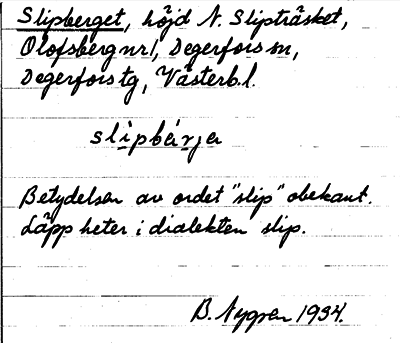 Slipberget, höjd N. Slipträsket,
Olofsberg nr 1, Degerfors sn,
Degerfors tg, Västerb. l.
slipbärja
Betydelsen av ordet "slip" obekant.
Läpp heter i dialekten slip.
B. Nygren 1934.